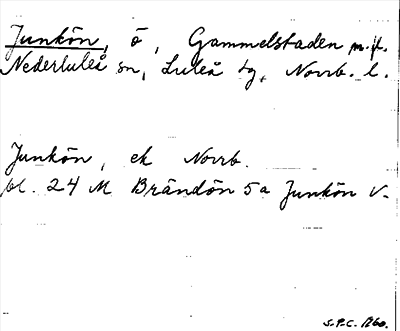 Junkön, ö, Gammelstaden m.fl.
Nederluleå sn, Luleå tg, Norrb. l.
Junkön, ek Norrb.
bl. 24 M Brändön 5a Junkön V.
S.P.C. 1260.